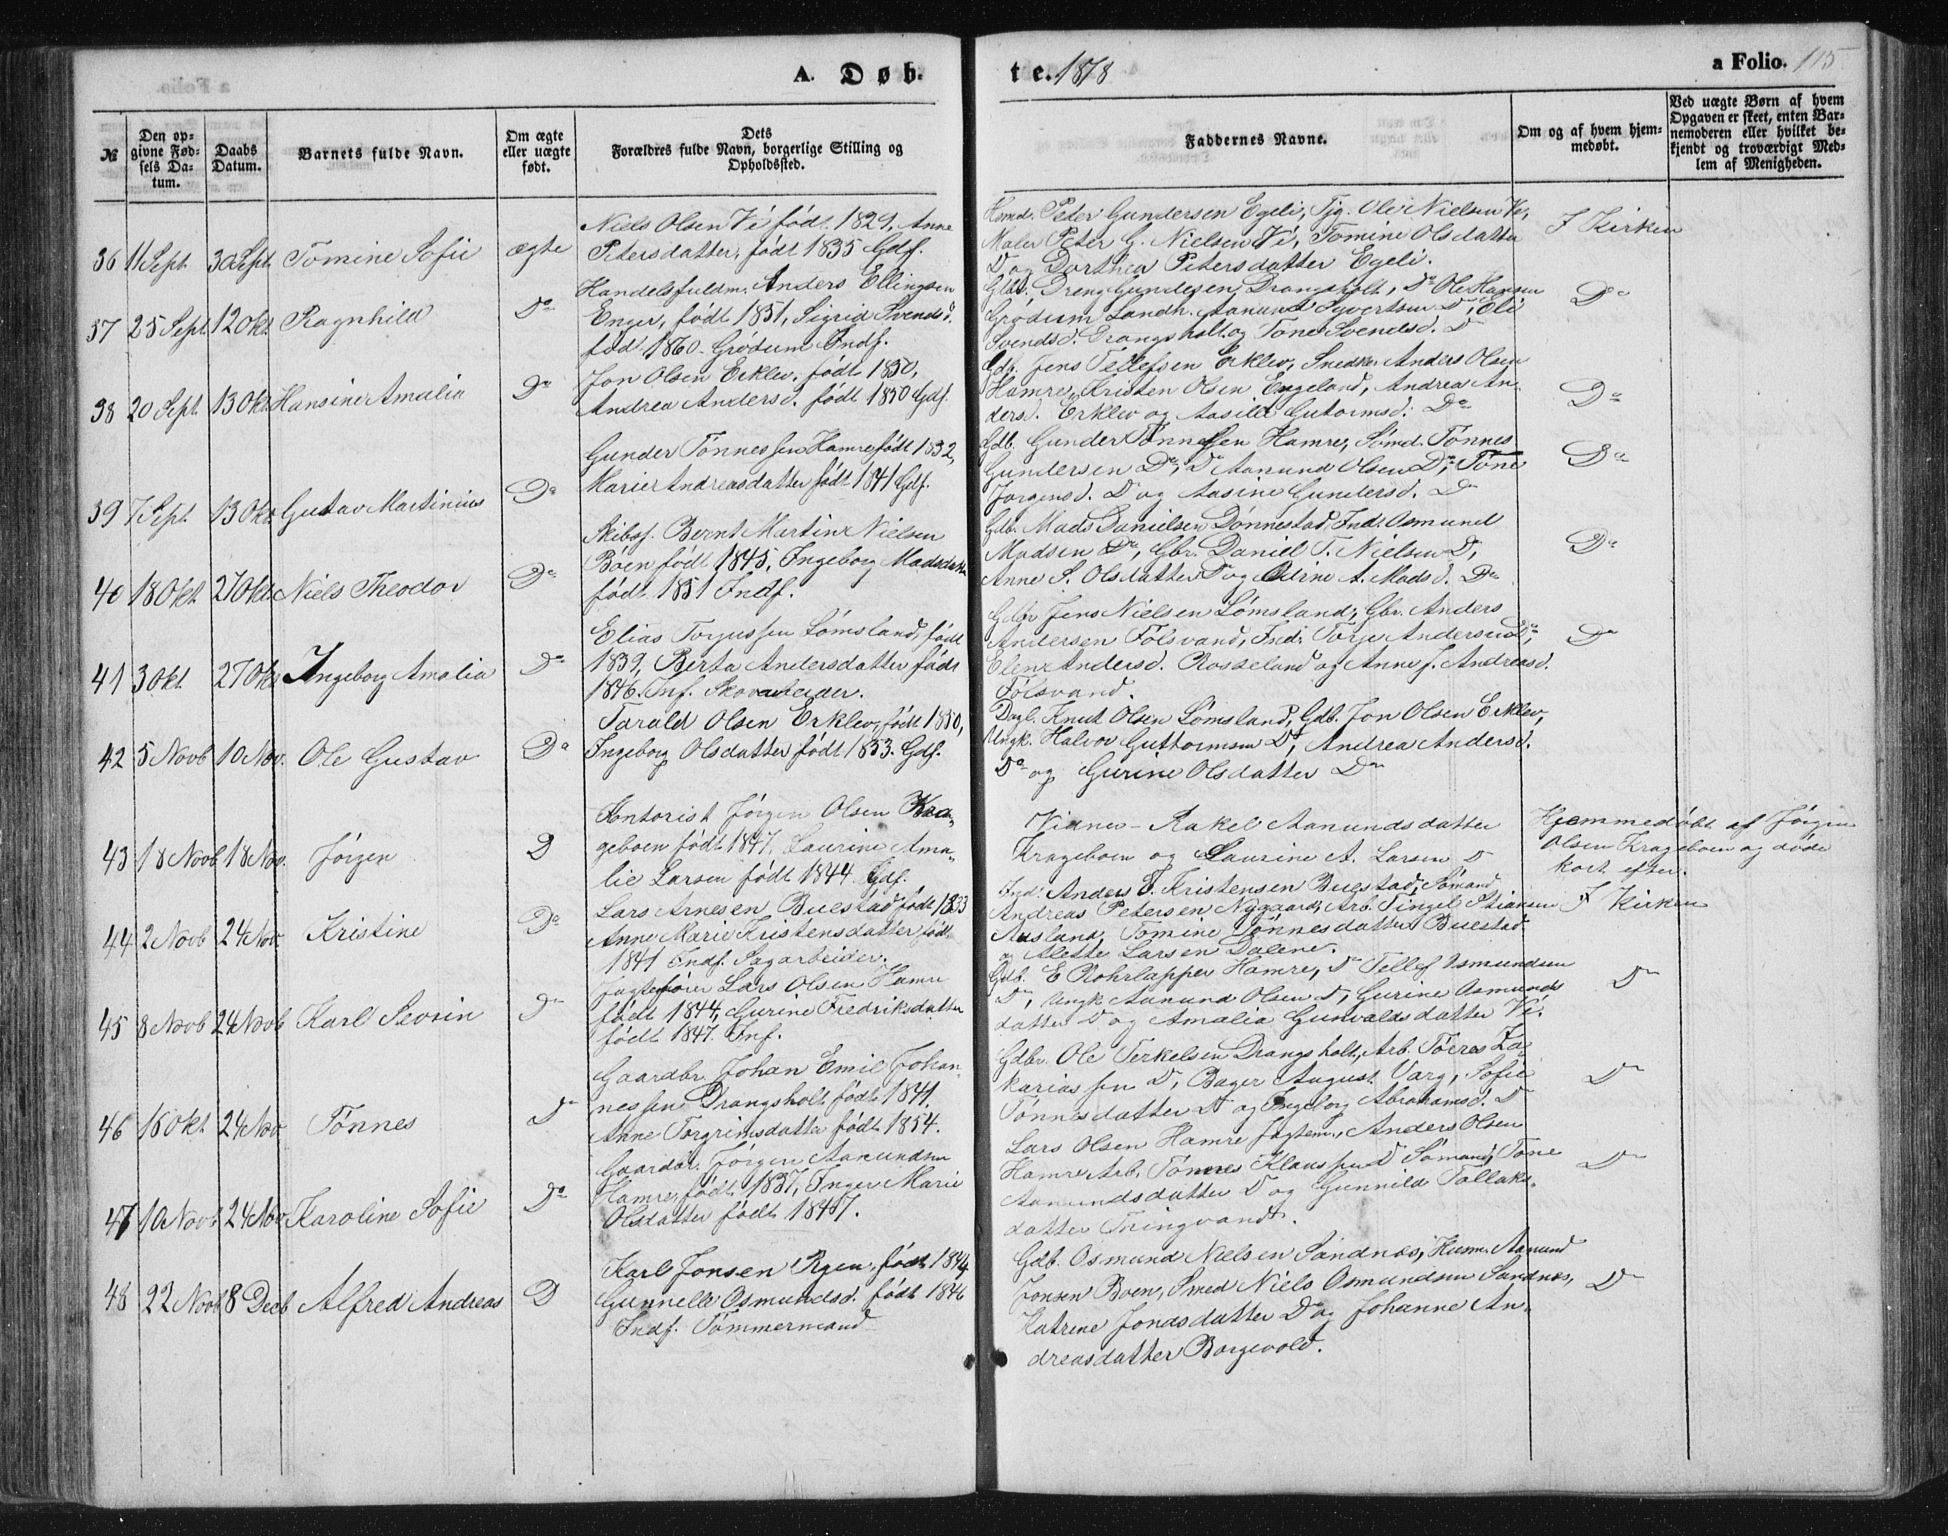 A. Døb-
te. 1878
a Folio. 115
№
Den op-
givne Fød-
sels Da-
tum.
Daabs
Datum.
Barnets fulde Navn.
Om ægte
eller uægte
født.
Dets
Forældres fulde Navn, borgerlige Stilling og
Opholdssted.
Faddernes Navne.
Om og af hvem hjem-
medøbt.
Ved uægte Børn af hvem
Opgaven er skeet, enten Bar-
nemoderen eller hvilket be-
kjendt og troværdigt Med-
lem af Menigheden.
36 11 Sept 30 Sept. Tomine Sofie ægte
Niels Olsen Vé født 1829, Anne
Petersdatter, født 1835 Gdf.
Peder Gundersen Egeli, Tjg. Ole Nielsen Ve,
Maler Peter G. Nielsen Vé, Tomine Olsdatter
D og Dorthea Petersdatter Egeli.
I Kirken
37 25 Sept 12 Okt Ragnhild Do
Handelsfuldm. Anders Ellingsen
Enger, født 1851, Sigrid Svendsd.
født 1860. Grødum Indf.
Gdb. Dreng Gundersen Drangsholt, Do Ole Hansen
Grødum Landh. Aanund Syvertsen D, Oli
Svendsd. Drangsholt og Tone Svendsd. D
Do
38 20 Sept 13 Okt Hansine Amalia Do
Jon Olsen Erklev, født 1850,
Andrea Andersd. født 1850 Gdf.
Gdb. Jens Tellefsen Erklev, Snedker Anders Olsen
Hamre, Kristen Olsen Engeland, Andrea An-
dersd. Erklev og Aasild Gutormsd. Do
Do
39 7 Sept. 13 Okt. Gustav Martinius Do
Gunder Tønnessen Hamre født 1832,
Marie Andreasdatter født 1841 Gdf.
Gdb. Gunder Tønnessen Hamre, Sømd. Tønnes
Gundersen Do, Do Aanund Olsen Do, Tone
Jørgensd. D og Aasine Gundersd. Do
Do
40 18 Okt. 27 Okt. Niels Theodor Do
Skibsf. Bernt Martin Nielsen
Boen født 1845, Ingeborg Madsdatter
født 1851 Indf.
Gdb. Mads Danielsen Dønnestad, Ind. Osmund
Madsen Do, Gbr. Daniel T. Nielsen D,
Anne S. Olsdatter D og Odine A. Madsd. Do
Do
41 3 Okt. 27 Okt Ingeborg Amalia Do
Elias Torgussen Lømsland, født
1839, Berta Andersdatter født
1846. Inf. Skovarbeider.
Gdbr Jens Nielsen Lømsland, Gbr. Anders
Andersen Følsvand, Ind. Torje Andersen Do,
Elen Andersd. Rosseland og Anne J. Andreasd.
Følsvand.
Do
42 5 Novb 10 Nov. Ole Gustav Do
Tarald Olsen Erklev, født 1850,
Ingeborg Olsdatter født 1853. Gdf.
Dagl. Knut Olsen Lømsland, Gdb. Jon Olsen Erklev,
Ungk. Halvor Guttormsen D, Andrea Andersd.
Do og Gurine Olsdatter Do
43 18 Novb 18 Nov. Jørgen D
Kontorist Jørgen Olsen Kra-
geboen født 1847, Laurine Ama-
lie Larsen født 1844 Gdf.
Vidner – Rakel Aanundsdatter
Krageboen og Laurine A. Larsen D
Hjemmedøbt af Jørgen
Olsen Krageboen og døde
kort efter.
44 2 Novb 24 Nov. Kristine Do
Lars Arnesen Buestad født 1833
Anne Marie Kristensdatter født
1841 Indf. Sagarbeider.
Ind. Anders T. Kristensen Buestad, Sømand
Andreas Petersen Nygaard, Arb. Tingel Stiansen
Ausland, Tomine Tønnesdatter Buestad
og Alette Larsen Dalene.
I Kirken
45 8 Novb 24 Novb Karl Severin Do
Jagtefører Lars Olsen Hamre
født 1844, Gurine Fredriksdatter
født 1847. Inf.
Gdb. E Rohrlapper Hamre, Do Tellef Osmundsen
Do, Ungk Aanund Olsen D, Gurine Osmunds
datter D og Amalia Gunvaldsdatter Vé.
Do
46 16 Okt 24 Nov Tønnes Do
Gaardbr. Johan Emil Johan-
nessen Drangsholt, født 1841.
Anne Torgrimsdatter født 1854.
Gdbr. Ole Terkelsen Drangsholt, Arb. Tøeres Za-
kariassen D, Bager August Varg, Sofie
Tønnesdatter D og Ingeborg Abrahamsd. D
Do
47 10 Novb 24 Nov Karoline Sofie Do
Gaardbr. Jørgen Aanundsen
Hamre, født 1837, Inger Marie
Olsdatter født 1847.
Lars Olsen Hamre Jagtem., Anders Olsen
Hamre, Arb. Tønnes Klaussen D Sømand, Tone
Aanundsdatter D og Gunnild Tallaks-
datter Tringvand.
Do
48 22 Novb 8 Decb Alfred Andreas D
Karl Jonsen Ryen, født 1844
Gunnelle Osmundsd. født 1846
Indf. Tømmermand
Gdb. Osmund Nielsen Sandnes, Aanund
Jonsen Boen, Smed Niels Osmundsen Sandnes,
Katrine Jondsdatter D og Johanne An-
dreasdatter Borgevold.
Do